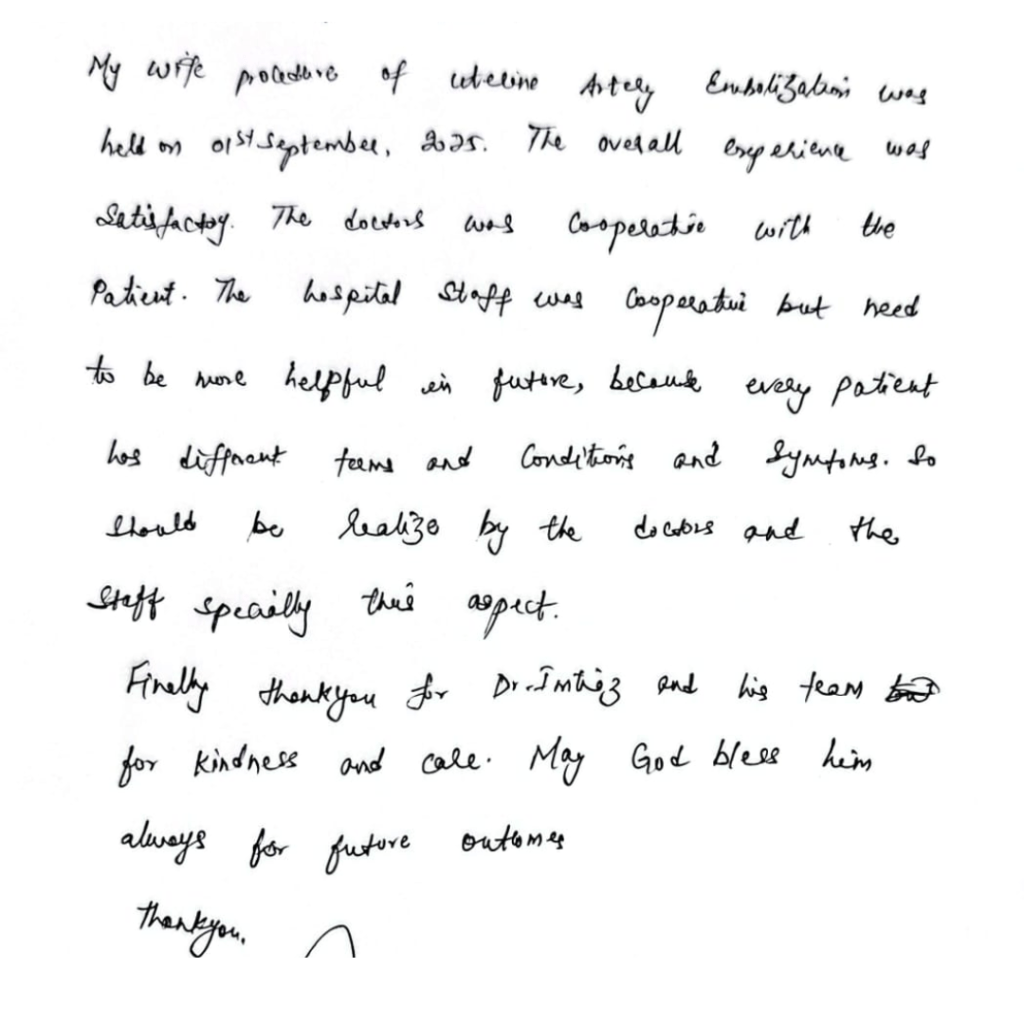 My wife procedure of uterine Artery Embolization was
held on 01st September, 2025. The overall experience was
Satisfactory. The doctors was Cooperative with the
Patient. The hospital Staff was Cooperative but need
to be more helpful in future, because every patient
has different terms and Conditions and Symptoms. So
should be realize by the doctors and the
Staff specially this aspect.
Finally thankyou for Dr. Imtiaz and his team
for kindness and care. May God bless him
always for future outcomes
Thankyou.